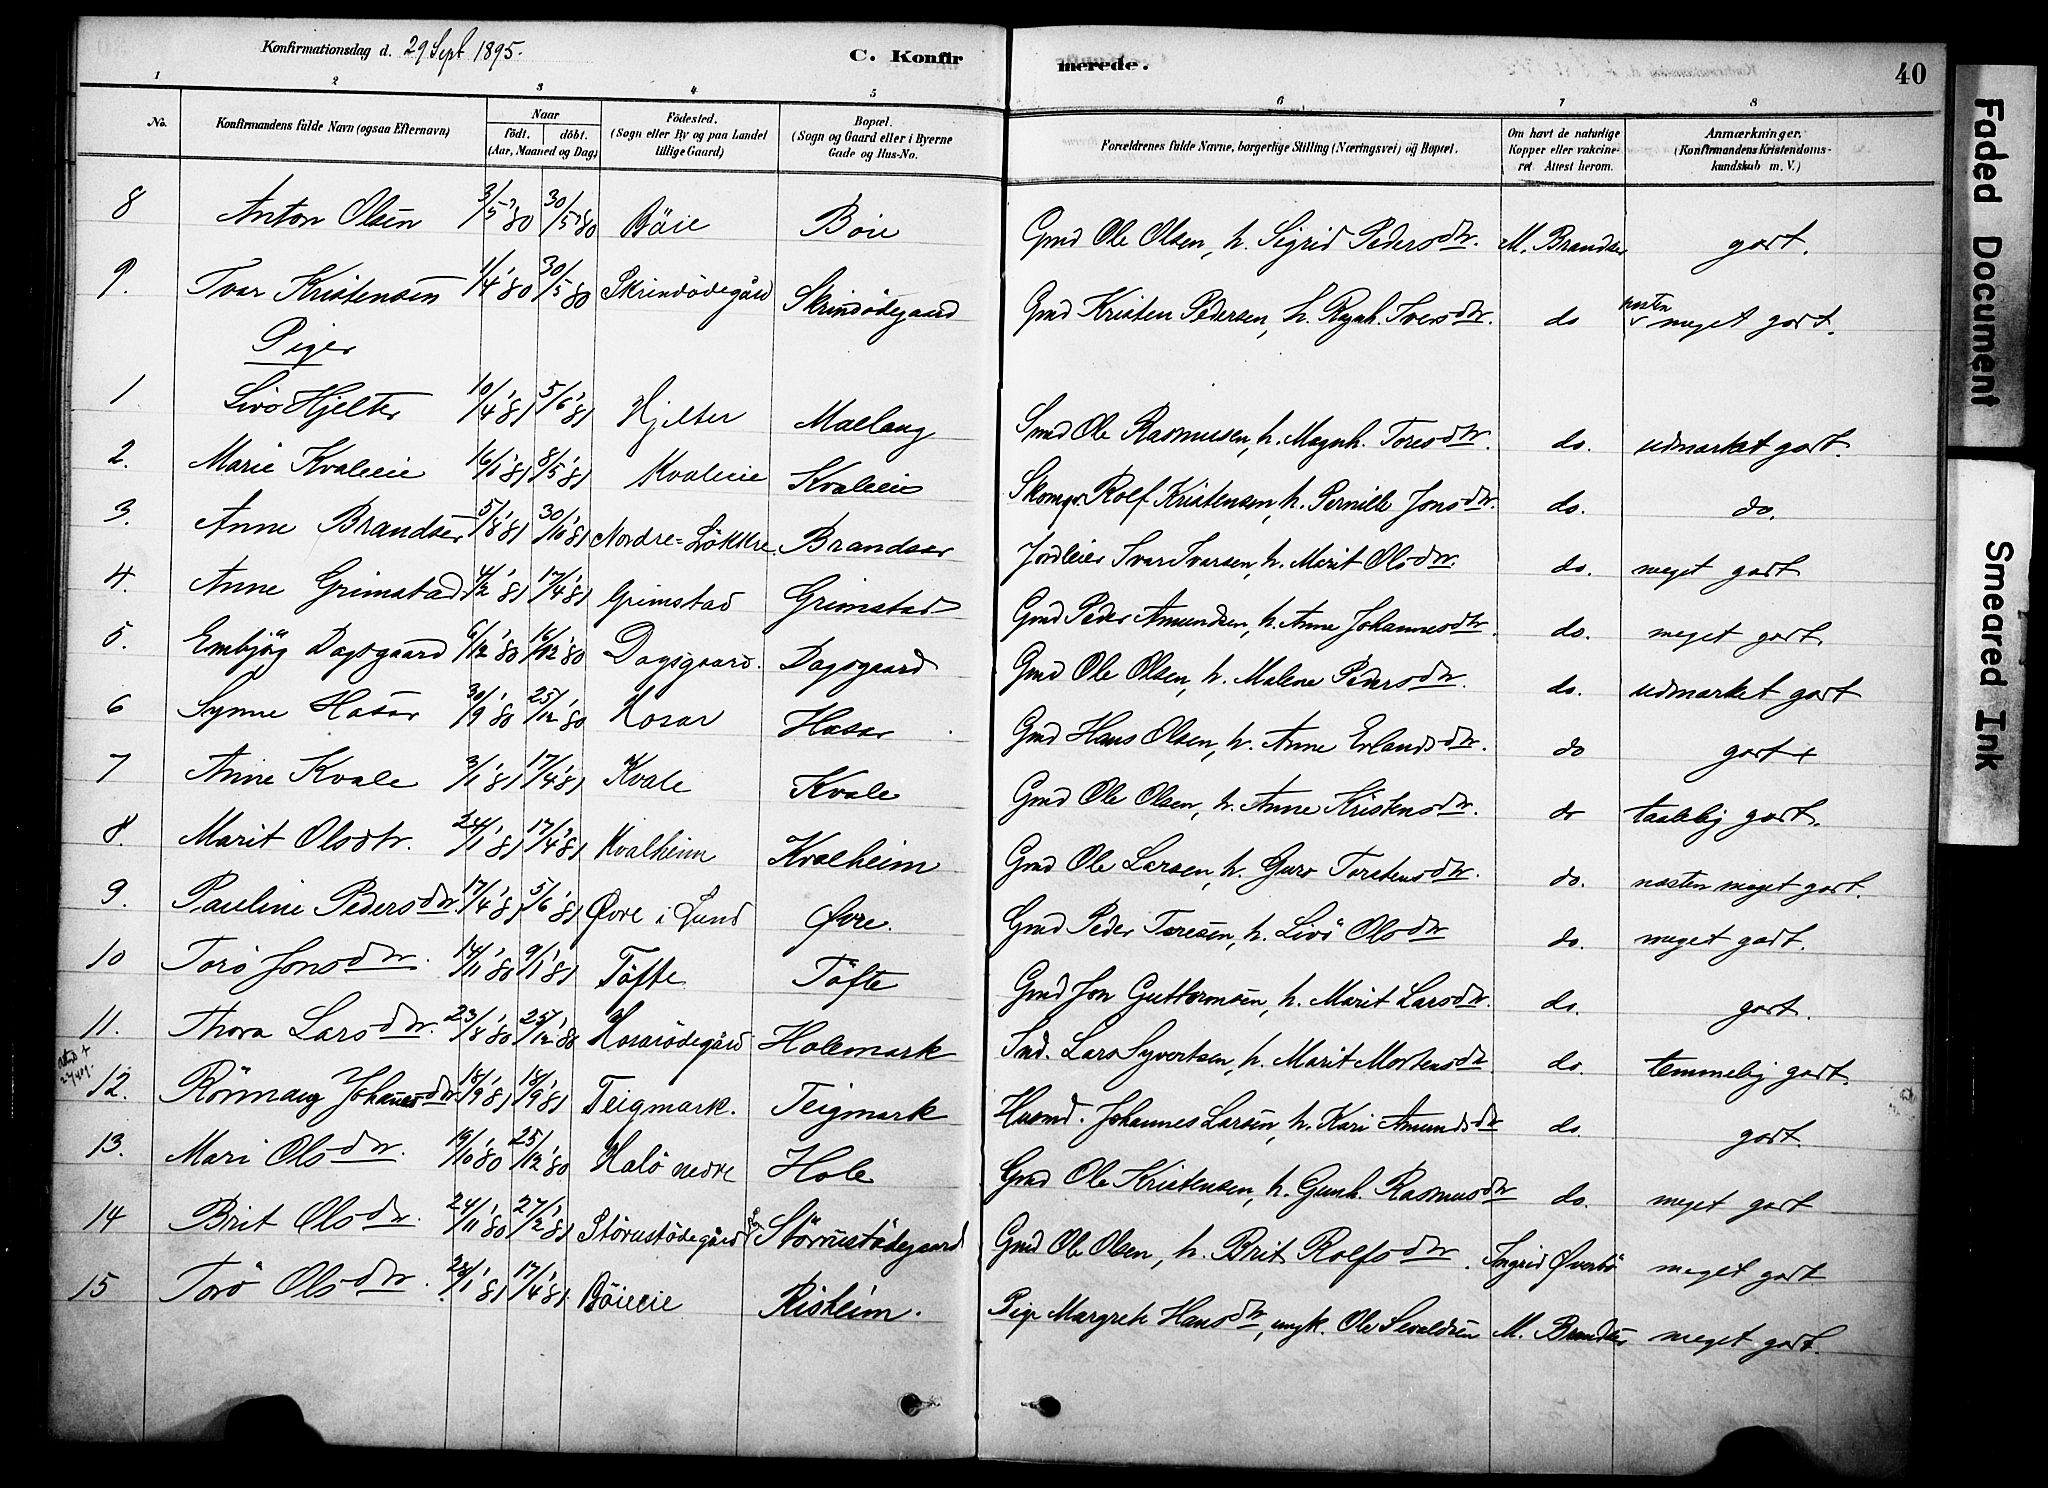 Konfirmationsdag d. 29 Sept 1895.
C. Konfirmerede.
40
1 2 3 4 5 6 7 8
No.
Konfirmandens fulde Navn (ogsaa Efternavn)
Naar
født. døbt.
(Aar, Maaned og Dag)
Fødested.
(Sogn eller By og paa Landet
tillige Gaard)
Bopæl.
(Sogn og Gaard eller i Byerne
Gade og Hus-No.
Forældrenes fulde Navne, borgerlige Stilling (Næringsvei) og Bopæl.
Om havt de naturlige
Kopper eller vakcine-
ret. Attest herom.
Anmærkninger.
(Konfirmandens Kristendoms-
kundskab m. V.)
8 Anton Olsen 3/5 '80 30/5 '80 Böie Böie Gmd Ole Olsen, h. Sigrid Pedersdtr. M. Brandser godt.
9. Ivar Kristensen 1/4 '80 30/5 '80 Skrindödegård Skrindödegaard Gmd Kristen Pedersen, h. Ragnh. Iversdtr. do næsten meget godt.
Piger
1 Livö Hjelter 19/4 '81 5/6 '81 Hjelter Maelang Smd Ole Rasmusen, h. Magnh. Toresdtr. do. udmærket godt.
2. Marie Kvaleeie 16/1 '81 8/5 '81 Kvaleeie Kvaleeie Skomgr. Rolf Kristensen, h. Pernille Jonsdtr. do. do.
3. Anne Brandser 5/8 '81 30/10 '81 Nordre=Løkkre Brandser Jordeier Ivar Ivarsen, h. Marit Olsdtr. do. meget godt
4. Anne Grimstad 4/2 '81 17/4 '81 Grimstad Grimstad Gmd Peder Amundsen, h. Anne Johannesdtr. do. meget godt.
5. Embjög Dagsgaard 6/12 '80 16/12 '80 Dagsgaard. Dagsgaard Gmd Ole Olsen, h. Malene Pedersdtr. do. udmærket godt
6 Synne Hosar 30/9 '80 25/12 '80 Hosar Hosar Gmd Hans Olsen, h. Anne Erlandsdtr. do godt +
7 Anne Kvale 3/1 '81 17/4 '81 Kvale Kvale Gmd Ole Olsen, h. Anne Kristensdtr. do taalelig godt.
8. Marit Olsdtr. 24/1 '81 17/4 '81 Kvalheim Kvalheim Gmd Ole Larsen, h. Guro Torstensdtr. do. næsten meget godt.
9. Pauline Pedersdtr. 17/4 '81 5/6 '81 Øvre i Lund Øvre. Gmd Peder Toresen, h. Livö Olsdtr do. meget godt.
10 Torö Jonsdtr. 14/11 '80 9/1 '81 Töfte Töfte Gmd Jon Guttormsen, h. Marit Larsdtr. do. godt.
11. Thora Larsdtr. 23/8 '80 25/12 '80 Hosarödegård Holemark Smd. Lars Syvertsen, h. Marit Mortensdtr do. temmelig godt.
12. Rönnaug Johannesdtr 18/9 '81 18/9 '81 Teigmark. Teigmark Husmd. Johannes Larsen, h. Kari Amundsdtr do. godt
13. Mari Olsdtr. 19/10 '80 25/12 '80 Halö nedre Hole Gmd Ole Kristensen, h. Gunh. Rasmusdtr do. meget godt
14 Brit Olsdtr. 24/11 '80 27/2 '81 Störustödegård Störrustödegaard Gmd Ole Olsen, h. Brit Rolfsdtr. Ingrid Øverbö meget godt
15 Torö Olsdtr. 28/1 '81 17/4 '81. Böieeie Risheim. Pige Margrete Hansdtr, ungk. Ole Sevaldsen M. Brandser meget godt.
Faded Document
Smeared Ink